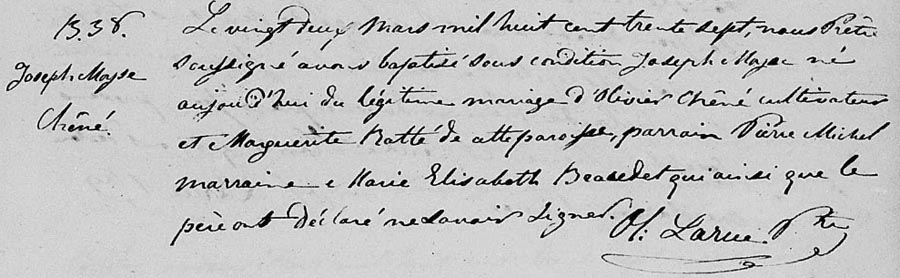 B. 38.
Joseph Moyse
Chêné.
Le vingt deux Mars mil huit cent trente sept, nous Prêtre
soussigné avons baptisé sous condition Joseph Moyse né
aujourd'hui du légitime mariage d'Olivier Chêné cultivateur
et Marguerite Ratté de cette paroisse, parrain Pierre Michel
marraine Marie Elisabeth Beaudet qui ainsi que le
père ont déclaré ne savoir signer.
Ol: Larue. Ptre